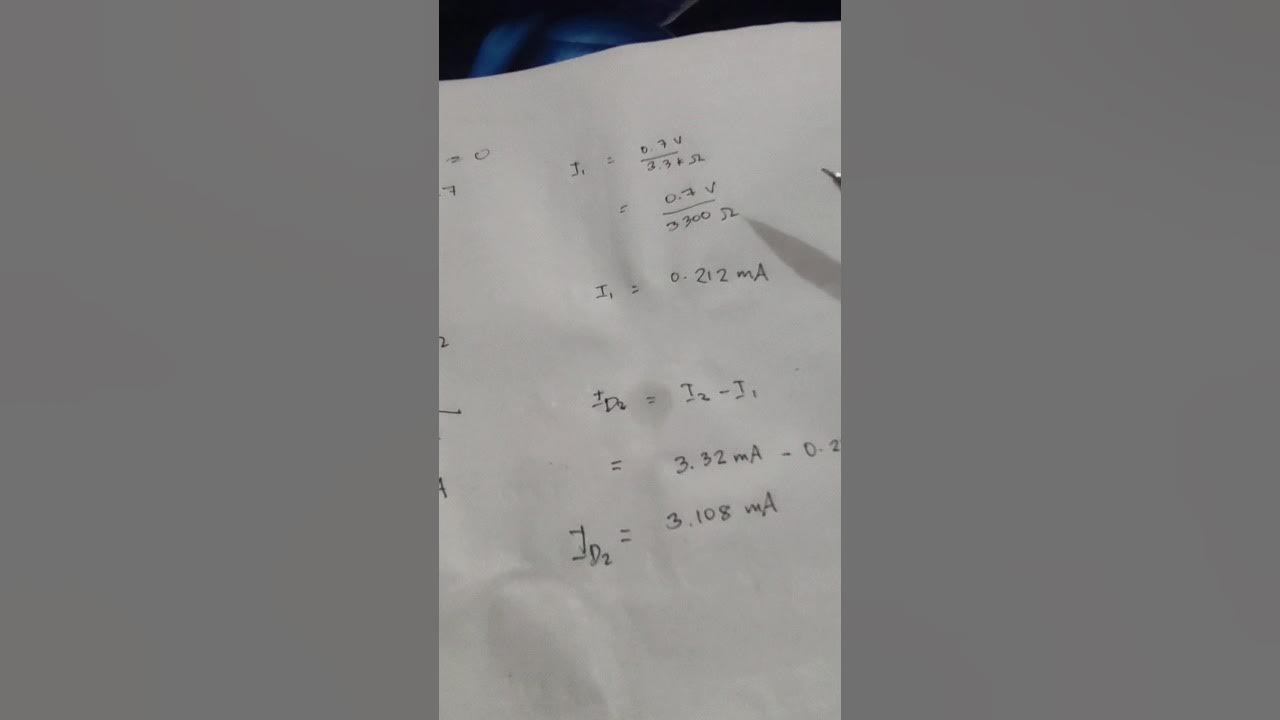 = 0
.7
2
A
I₁ = 0.7 V / 3.3 k Ω
= 0.7 V / 3300 Ω
I₁ = 0.212 mA
I_D₂ = I₂ - I₁
= 3.32 mA - 0.2
I_D₂ = 3.108 mA